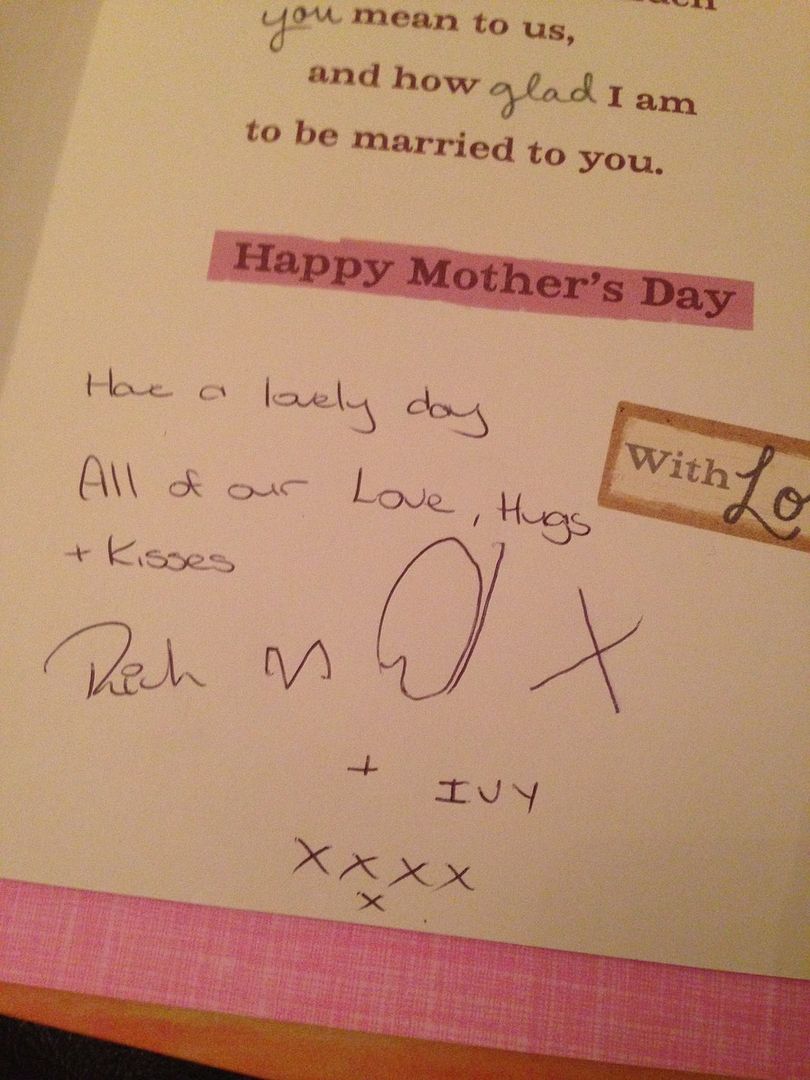 you mean to us,
and how glad I am
to be married to you.
Happy Mother's Day
Have a lovely day
With Lo
All of our Love, Hugs
+ Kisses
Rich
X
+ IVY
X X X X
X